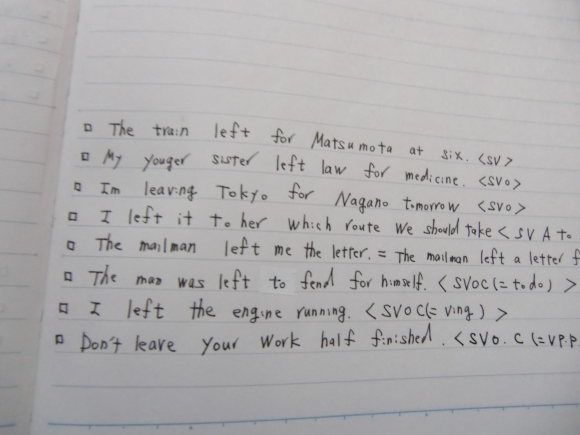 □ The train left for Matsumota at six. <SV>
□ My youger sister left law for medicine. <SVO>
□ Im leaving Tokyo for Nagano tomorrow <SVO>
□ I left it to her which route we should take < SV A to.
□ The mailman left me the letter. = The mailman left a letter f
□ The man was left to fend for himself. < SVOC (= to do) >
□ I left the engine running. < SVOC (= Ving) >
□ Don't leave your work half finished. < SVO. C (= VP.P